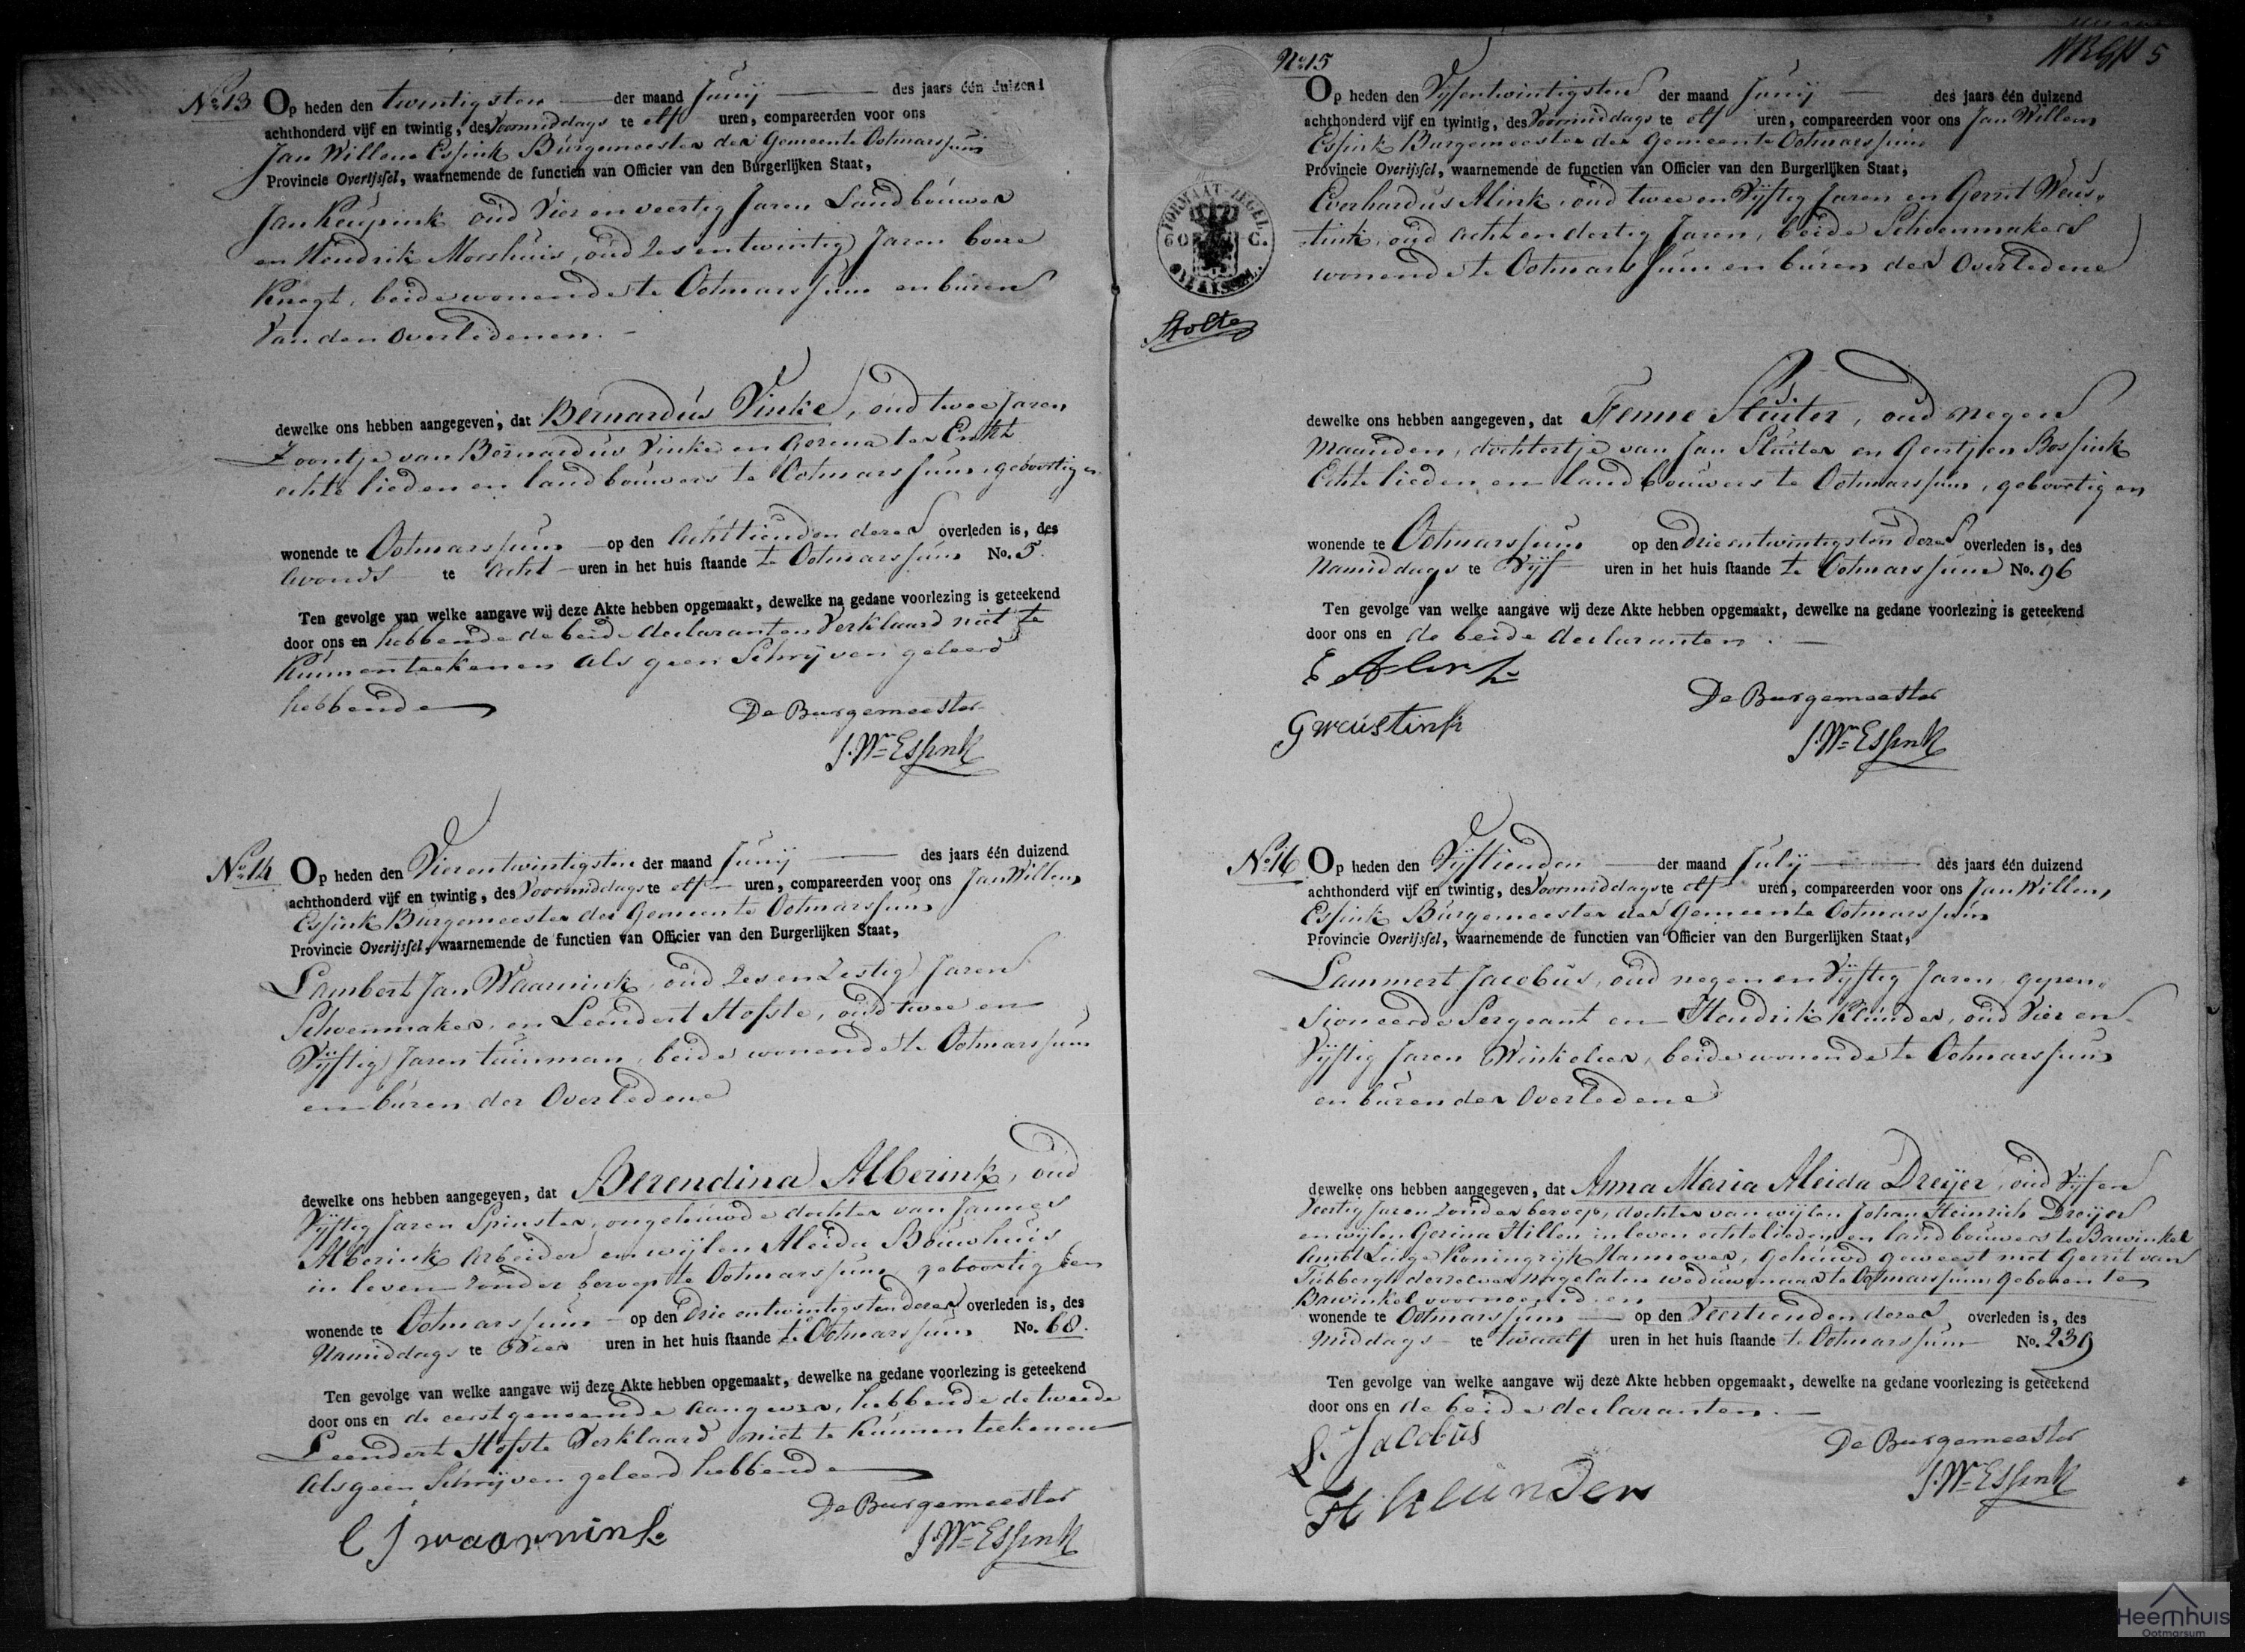 No. 13 Op heden den twintigsten der maand Junij des jaars één duizend
achthonderd vijf en twintig, des Voormiddags te elf uren, compareerden voor ons
Jan Willem Essink Burgemeester der Gemeente Ootmarssum
Provincie Overijssel, waarnemende de functien van Officier van den Burgerlijken Staat,
Jan Keupink oud Vier en veertig Jaren Landbouwer
en Hendrik Morshuis, oud Zes en twintig Jaren boere
Knegt, beide wonende te Ootmarssum en buren
Van den Overledenen.
dewelke ons hebben aangegeven, dat Bernardus Vinke, oud twee Jaren
Zoontje van Bernardus Vinke en Gerena ter
echte lieden en landbouwers te Ootmarssum, geboortig en
wonende te Ootmarssum op den Achttienden dezer overleden is, des
Avonds te Acht uren in het huis staande te Ootmarssum No. 5.
Ten gevolge van welke aangave wij deze Akte hebben opgemaakt, dewelke na gedane voorlezing is geteekend
door ons en hebbende de beide declaranten Verklaard niet te
Kunnen teekenen als geen Schrijven geleerd
hebbende
De Burgemeester
J. Wm Essink
No. 14 Op heden den Vierentwintigsten der maand Junij des jaars één duizend
achthonderd vijf en twintig, des Voormiddags te elf uren, compareerden voor ons Jan Willem
Essink Burgemeester der Gemeente Ootmarssum
Provincie Overijssel, waarnemende de functien van Officier van den Burgerlijken Staat,
Lambert Jan Waarnink, oud Zes en Zestig Jaren
Schoenmaker, en Leendert Hofste, oud twee en
Vijftig Jaren tuinman, beide wonende te Ootmarssum
en buren der Overledene
dewelke ons hebben aangegeven, dat Berendina Alberink, oud
Vijftig Jaren Spinster, ongehuwde dochter van Jannes
Alberink Arbeider en wijlen Aleida Bouwhuis
in leven Zonder beroep te Ootmarssum, geboortig en
wonende te Ootmarssum op den Drie entwintigsten dezer overleden is, des
Namiddags te Vier uren in het huis staande te Ootmarssum No. 68.
Ten gevolge van welke aangave wij deze Akte hebben opgemaakt, dewelke na gedane voorlezing is geteekend
door ons en de eerstgenoemde Aangever, hebbende de tweede
Leendert Hofste Verklaard niet te kunnen teekenen
Als geen Schrijven geleerd hebbende
De Burgemeester
L J waarnink
J. Wm Essink
5
No. 15
Op heden den Vijfentwintigsten der maand Junij des jaars één duizend
achthonderd vijf en twintig, des Voormiddags te elf uren, compareerden voor ons Jan Willem
Essink Burgemeester der Gemeente Ootmarssum
Provincie Overijssel, waarnemende de functien van Officier van den Burgerlijken Staat,
Everhardus Alink, oud twee en Vijftig Jaren en Gerrit Weus-
tink, oud Acht en dertig Jaren, beide Schoenmakers
wonende te Ootmarssum en buren der Overledene
FORMAAT-ZEGEL
60 C.
Stolte
dewelke ons hebben aangegeven, dat Fenne Sluiter, oud Negen
Maanden, dochtertje van Jan Sluiter en Gertjen Bossink
Echtelieden en landbouwers te Ootmarssum, geboortig en
wonende te Ootmarssum op den drie entwintigsten dezer overleden is, des
Namiddags te Vijf uren in het huis staande te Ootmarssum No. 96
Ten gevolge van welke aangave wij deze Akte hebben opgemaakt, dewelke na gedane voorlezing is geteekend
door ons en de beide declaranten.
E Alink
De Burgemeester
G weustink
J. Wm Essink
No. 16 Op heden den Vijftienden der maand Julij des jaars één duizend
achthonderd vijf en twintig, des Voormiddags te elf uren, compareerden voor ons Jan Willem
Essink Burgemeester der Gemeente Ootmarssum
Provincie Overijssel, waarnemende de functien van Officier van den Burgerlijken Staat,
Lammert Jacobus, oud negen en Vijftig Jaren, gepen-
sioneerde Sergeant en Hendrik Klunder, oud Vier en
Vijftig Jaren Winkelier, beide wonende te Ootmarssum
en buren der Overledene
dewelke ons hebben aangegeven, dat Anna Maria Aleida Dreijer, oud Vijf en
Veertig Jaren Zonder beroep, dochter van wijlen Johan Heinrich Dreijer
en wijlen Gerina Hillen in leven echtelieden en landbouwers te Bawinkel
Ambt Linge Koningrijk Hannover, gehuwd geweest met Gerrit van
Tubbergh derzelver nagelaten weduwenaar te Ootmarssum, geboren te
Bawinkel voornoemd en
wonende te Ootmarssum op den Veertienden dezer overleden is, des
Middags te twaalf uren in het huis staande te Ootmarssum No. 239
Ten gevolge van welke aangave wij deze Akte hebben opgemaakt, dewelke na gedane voorlezing is geteekend
door ons en de beide declaranten.
L. Jacobus
De Burgemeester
H klunder
J. Wm Essink
Heemhuis
Ootmarsum